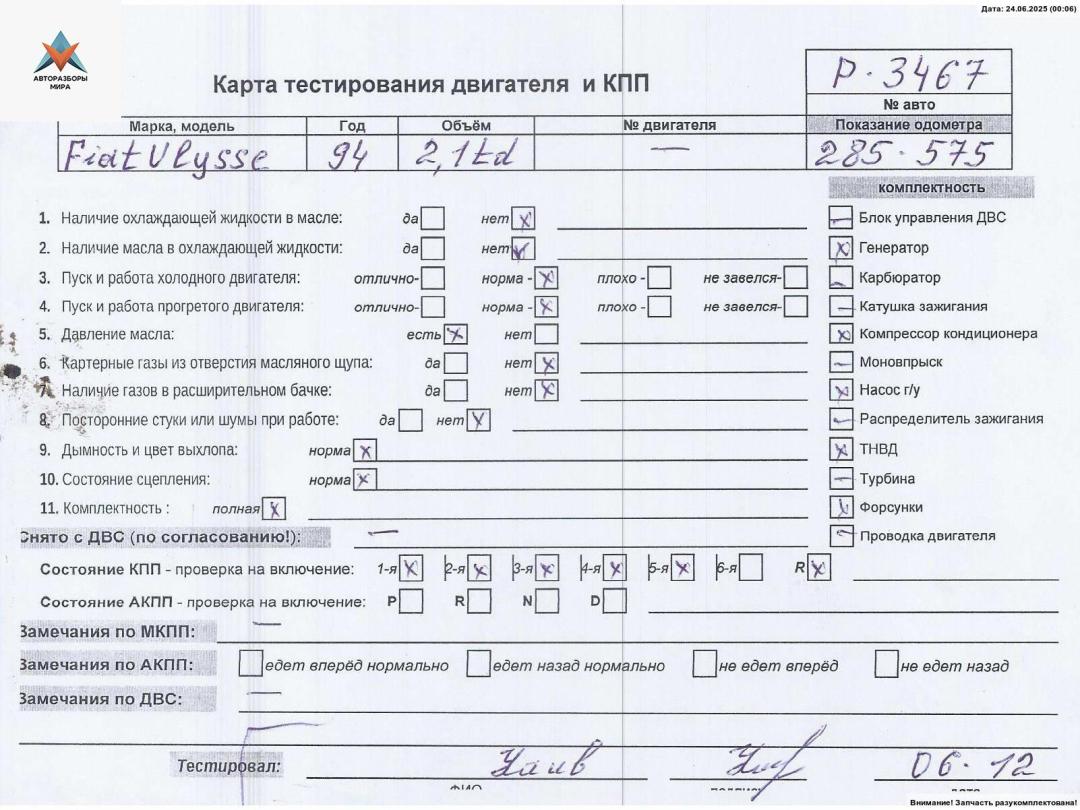 Дата: 24.06.2025 (00:06)
АВТОРАЗБОРЫ
МИРА
Карта тестирования двигателя и КПП
P-3467
№ авто
Марка, модель Год Объём № двигателя Показание одометра
Fiat Ulysse 94 2,1td — 285-575
комплектность
1. Наличие охлаждающей жидкости в масле: да нет x
Блок управления ДВС
2. Наличие масла в охлаждающей жидкости: да нет v
Генератор x
3. Пуск и работа холодного двигателя: отлично- норма - x плохо - не завелся-
Карбюратор
4. Пуск и работа прогретого двигателя: отлично- норма - x плохо - не завелся-
Катушка зажигания
5. Давление масла: есть x нет
Компрессор кондиционера x
6. Картерные газы из отверстия масляного щупа: да нет x
Моновпрыск
7. Наличие газов в расширительном бачке: да нет x
Насос г/у x
8. Посторонние стуки или шумы при работе: да нет x
Распределитель зажигания
9. Дымность и цвет выхлопа: норма x
ТНВД x
10. Состояние сцепления: норма x
Турбина
11. Комплектность : полная x
Форсунки x
Снято с ДВС (по согласованию!): —
Проводка двигателя
Состояние КПП - проверка на включение: 1-я x 2-я x 3-я x 4-я x 5-я x 6-я R x
Состояние АКПП - проверка на включение: P R N D
Замечания по МКПП: —
Замечания по АКПП: едет вперёд нормально едет назад нормально не едет вперёд не едет назад
Замечания по ДВС: —
Тестировал: 06-12
ФИО подпись дата
Внимание! Запчасть разукомплектована!